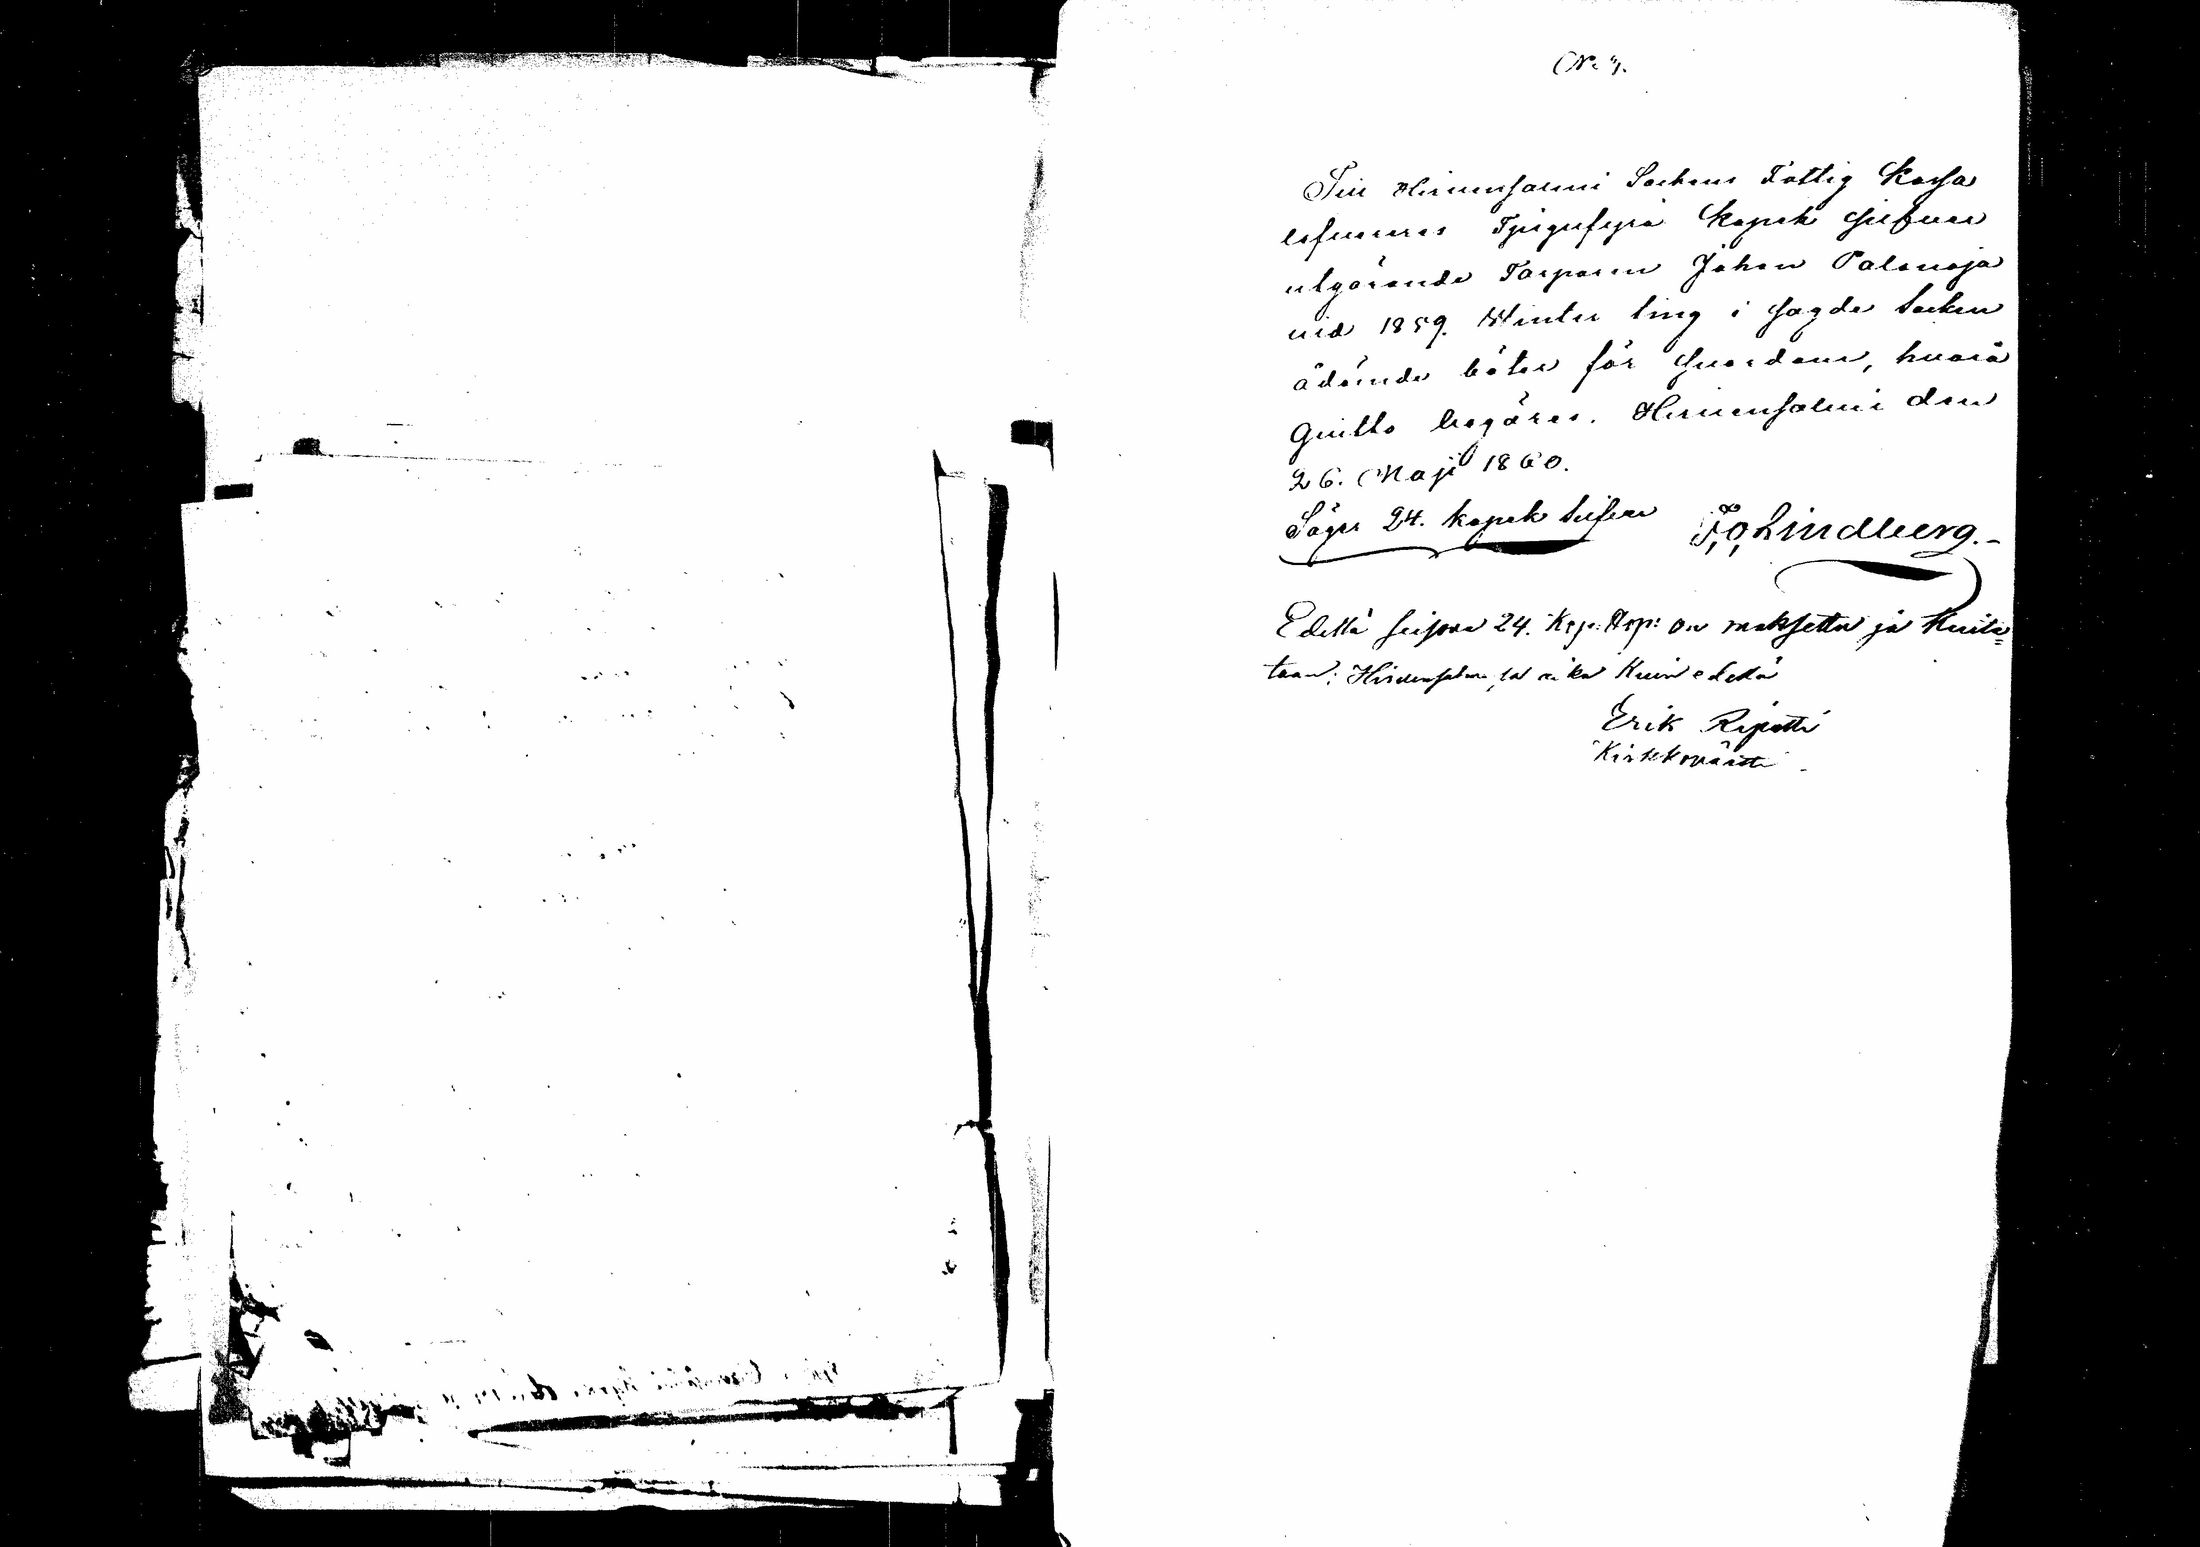 Till Hirvensalmi Sockens Fattig Kassa
lefvereras Tjugufyra Kopek Silfver
utgörande Torparen Johan Palonoja
vid 1859. Winter ting i sagde Socken
ådömde böter för svordom, hvarå
Quitto begäres. Hirvensalmi den
26. Maji 1860.
Säger 24. kopek Silfver
F, O, Lindberg.-
Edellä seisova 24. Kop: Hop: on maksettu ja Kuita=
taan; Hirvensalmi, sal aika Kuin edellä
Erik Ripatti
Kirkkovärtti